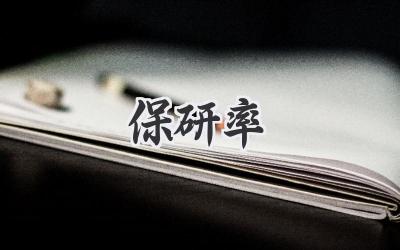 保研率